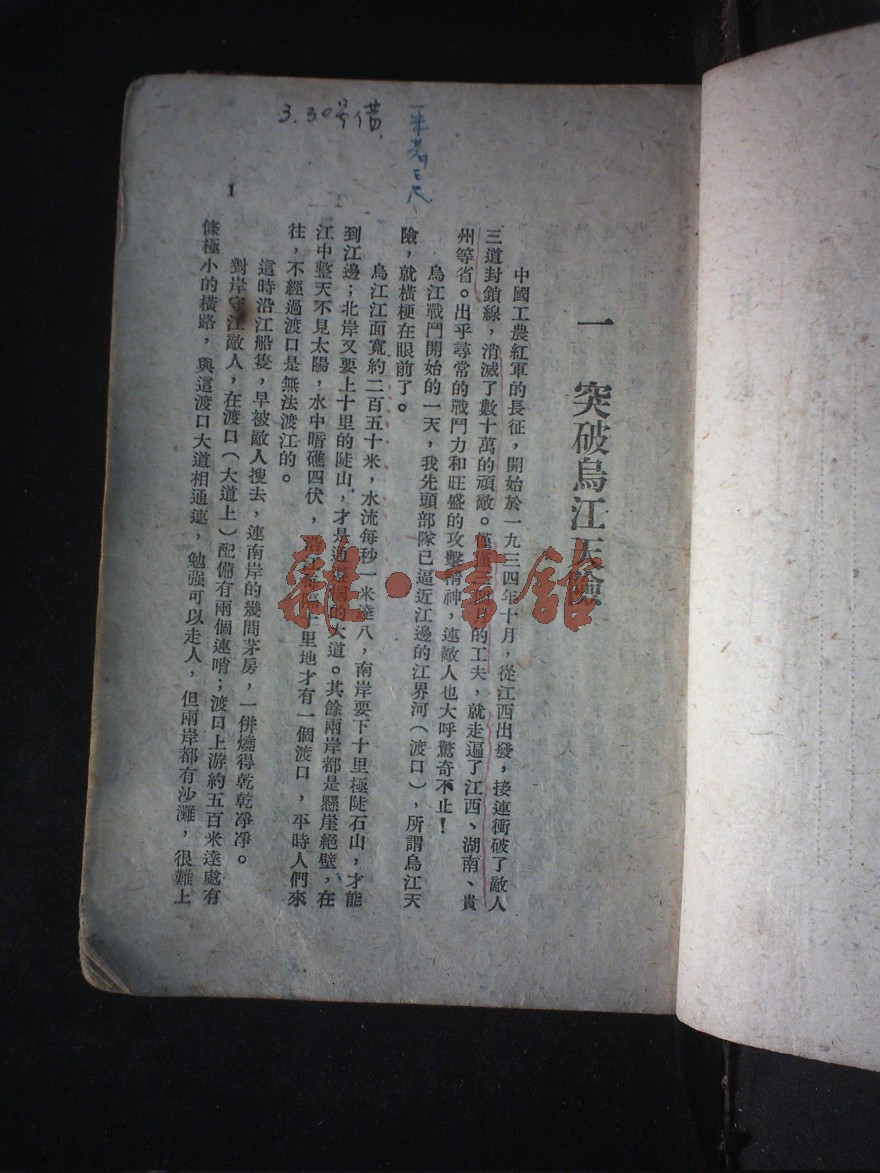 3.30号借
一 突破烏江天險
中國工農紅軍的長征，開始於一九三四年十月，從江西出發，接連衝破了敵人
三道封鎖線，消滅了數十萬的頑敵。僅僅三個月的工夫，就走遍了江西、湖南、貴
州等省。出乎尋常的戰鬥力和旺盛的攻擊精神，連敵人也大呼驚奇不止！
烏江戰鬥開始的一天，我先頭部隊已逼近江邊的江界河（渡口），所謂烏江天
險，就橫梗在眼前了。
烏江江面寬約二百五十米，水流每秒一米達八，南岸要下十里極陡石山，才能
到江邊；北岸又要上十里的陡山，才是通 的大道。其餘兩岸都是懸崖絕壁，在
江中整天不見太陽，水中暗礁四伏， 里地才有一個渡口，平時人們來
往，不經過渡口是無法渡江的。
這時沿江船隻，早被敵人搜去，連南岸的幾間茅房，一併燒得乾乾凈凈。
對岸守江敵人，在渡口（大道上）配備有兩個連哨；渡口上游約五百米達處有
條極小的橫路，與這渡口大道相通連，勉强可以走人，但兩岸都有沙灘，很難上
1
雜·書館